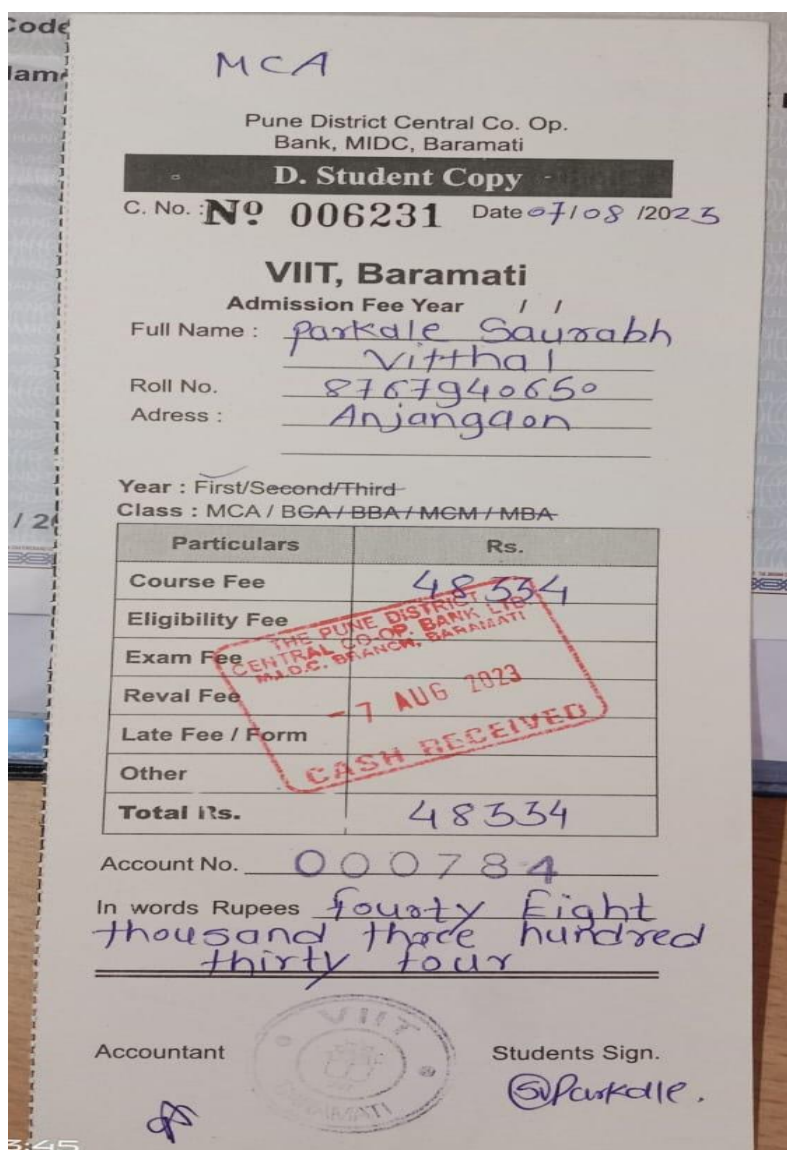 Code
MCA
Pune District Central Co. Op.
Bank, MIDC, Baramati
D. Student Copy
C. No. : Nº 006231 Date 07/08/2023
VIIT, Baramati
Admission Fee Year / /
Full Name : Parkale Saurabh
Vitthal
Roll No. 8767940650
Adress : Anjangaon
Year : First/Second/Third
Class : MCA / BCA / BBA / MCM / MBA
Particulars Rs.
Course Fee 48334
Eligibility Fee
Exam Fee
Reval Fee
Late Fee / Form
Other
THE PUNE DISTRICT
CENTRAL CO-OP. BANK LTD
M.I.D.C. BRANCH, BARAMATI
-7 AUG 2023
CASH RECEIVED
Total Rs. 48334
Account No. 000784
In words Rupees fourty Eight
thousand three hundred
thirty four
VIIT
BARAMATI
Accountant Students Sign.
SVParkale.
3:45